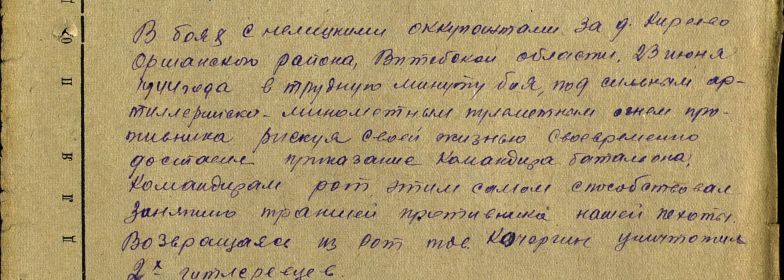 В бояз с немецкими оккупантами за д. Киреево
Оршанского района, Витебской области, 23 июня
1944 года в трудную минуту боя, под сильным ар-
тиллерийско-минометным пулеметным огнем про-
тивника рискуя своей жизнью своевременно
доставил приказание командира баталиона,
командирам рот этим самым способствовал
занятию траншей противника нашей пехоты.
Возвращаясь из рот тов. Кочергин уничтожил
2х гитлеревцев.